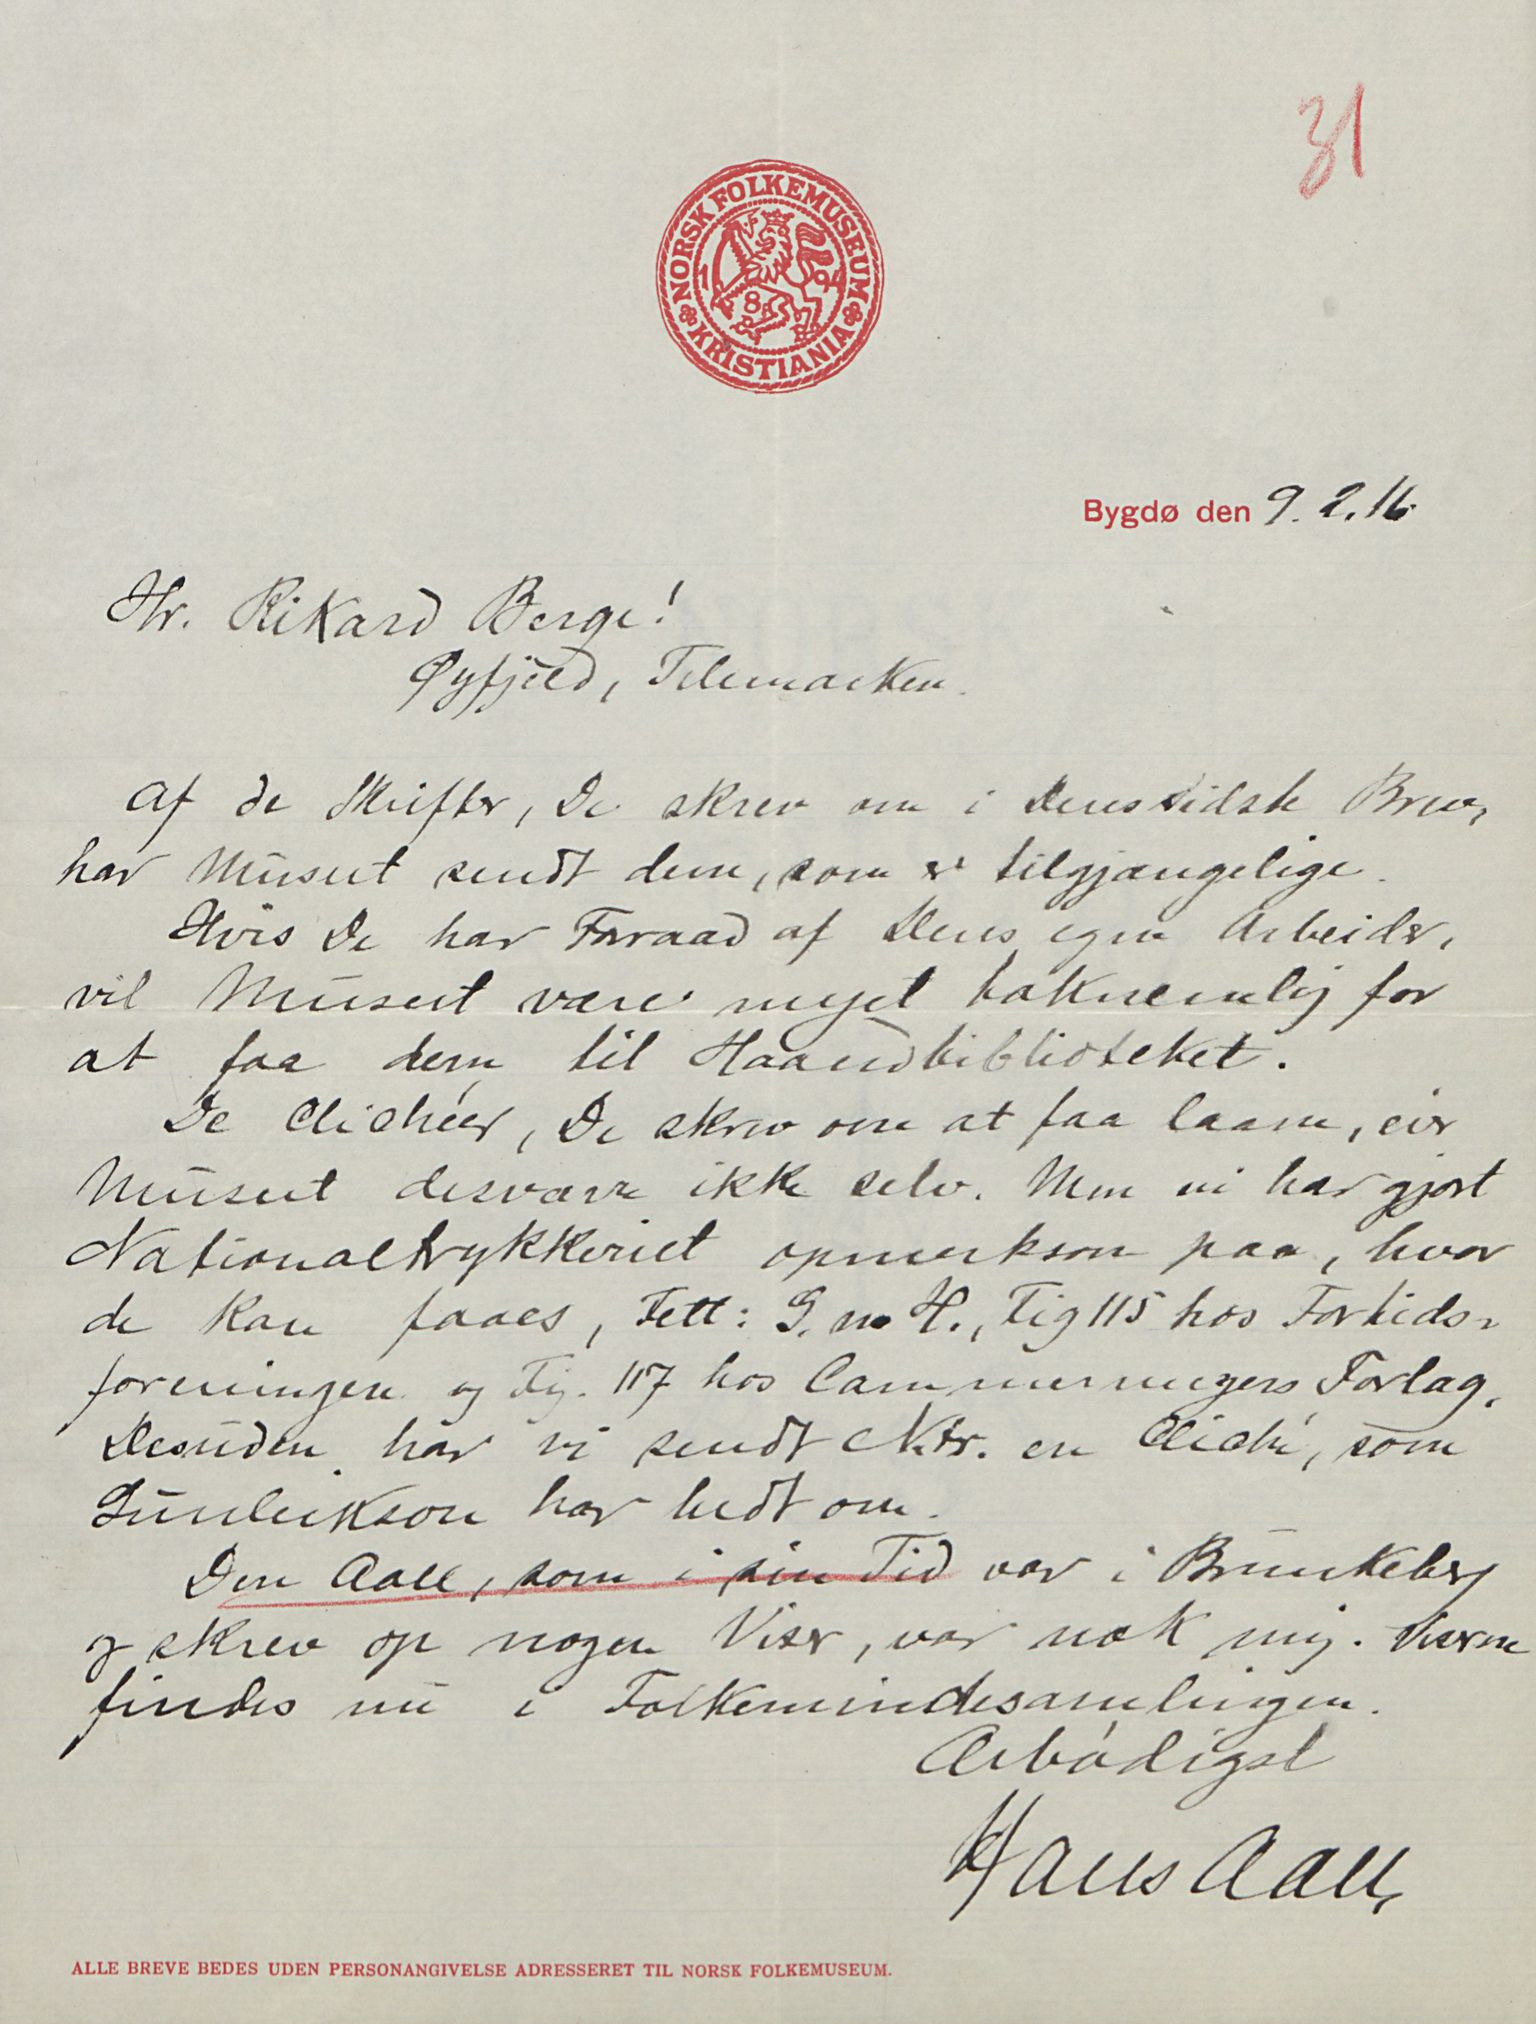 31
NORSK FOLKEMUSEUM
KRISTIANIA
1894
Bygdø den 9.2.16
Hr. Rikard Berge!
Øyfjeld, Telemarken.
Af de Skrifter, De skrev om i Deres sidste Brev,
har Museet sendt dem, som er tilgjængelige.
Hvis De har Forraad af Deres egne Arbeider,
vil Museet være meget taknemlig for
at faa dem til Haandbiblioteket.
De Clichéer, De skrev om at faa laane, eier
Museet desværre ikke selv. Men vi har gjort
Nationaltrykkeriet opmerksom paa, hvor
de kan faaes, Fett: G. n. H., Fig 115 hos Fortids-
foreningen og Fig. 117 hos Cammermeyers Forlag.
Desuden har vi sendt Ntr. en Cliché, som
Gunleikson har bedt om.
Den Aall, som i sin Tid var i Brunkeberg
og skrev op nogen Viser, var nok mig. Viserne
findes nu i Folkemindesamlingen.
Ærbødigst
Hans Aall,
ALLE BREVE BEDES UDEN PERSONANGIVELSE ADRESSERET TIL NORSK FOLKEMUSEUM.